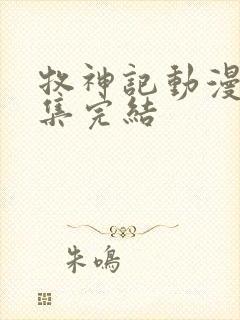 牧神記動漫
集完結
朱鳴